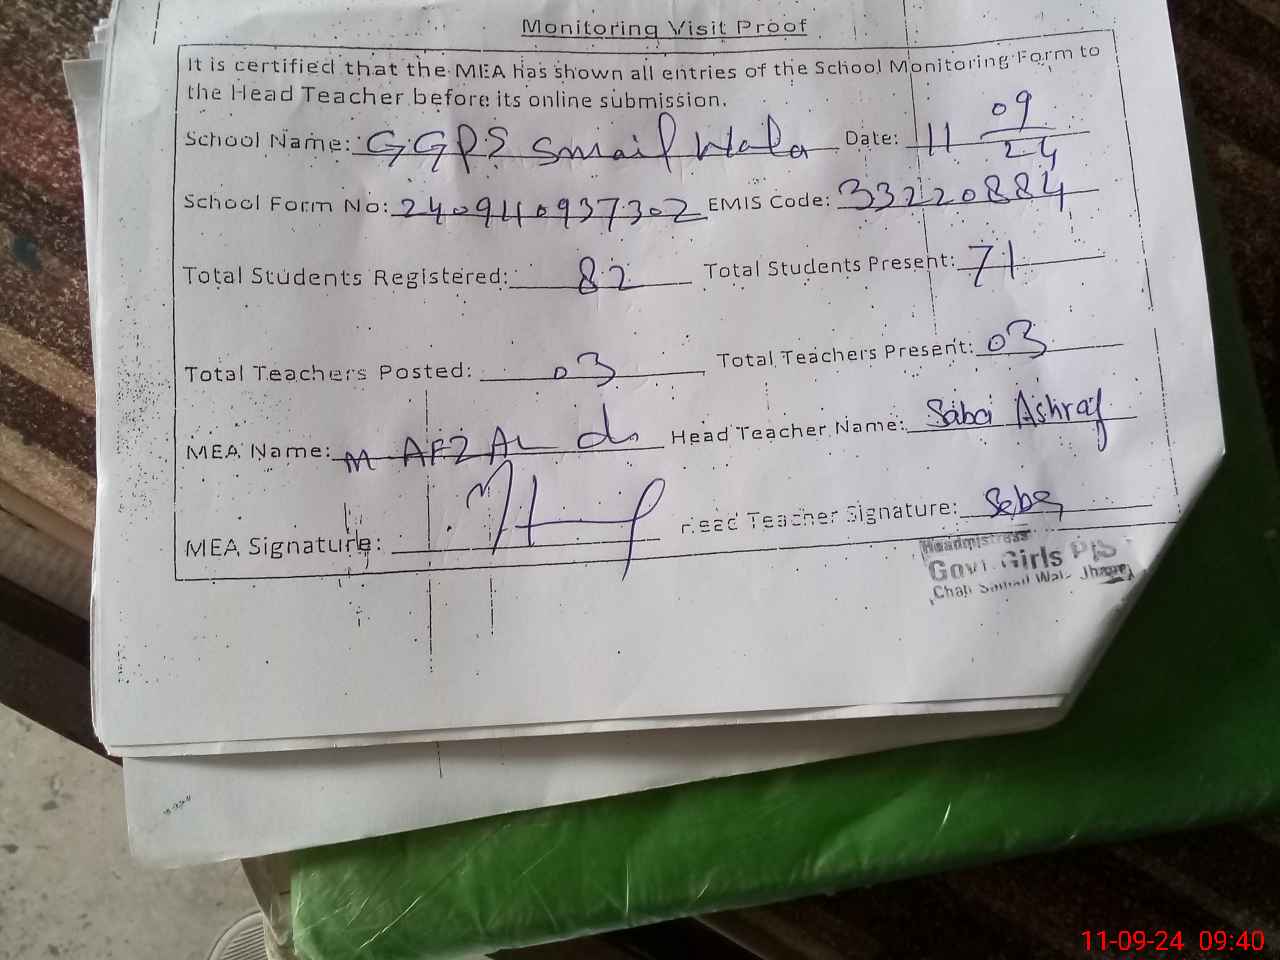 Monitoring Visit Proof
It is certified that the MEA has shown all entries of the School Monitoring Form to
the Head Teacher before its online submission.
School Name: GGPS Smail Wala Date: 11 09/24
School Form No: 240940937302 EMIS Code: 33220884
Total Students Registered: 82 Total Students Present: 71
Total Teachers Posted: 03 Total Teachers Present: 03
MEA Name: M AFZAL Head Teacher Name: Saba Ashraf
MEA Signature: Head Teacher Signature: Saba
Headmistress
Govt. Girls P/S
Chah Wala Jhang
11-09-24 09:40